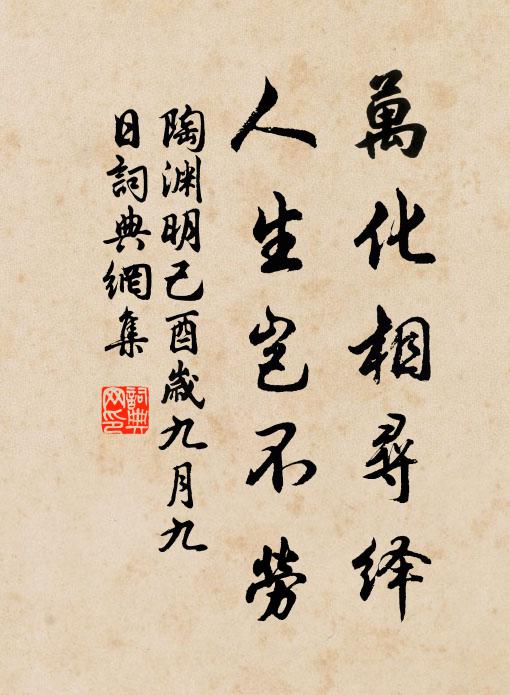 萬化相尋绎
人生岂不勞
陶渊明己酉歲九月九
日詞典網集
詞典
网印